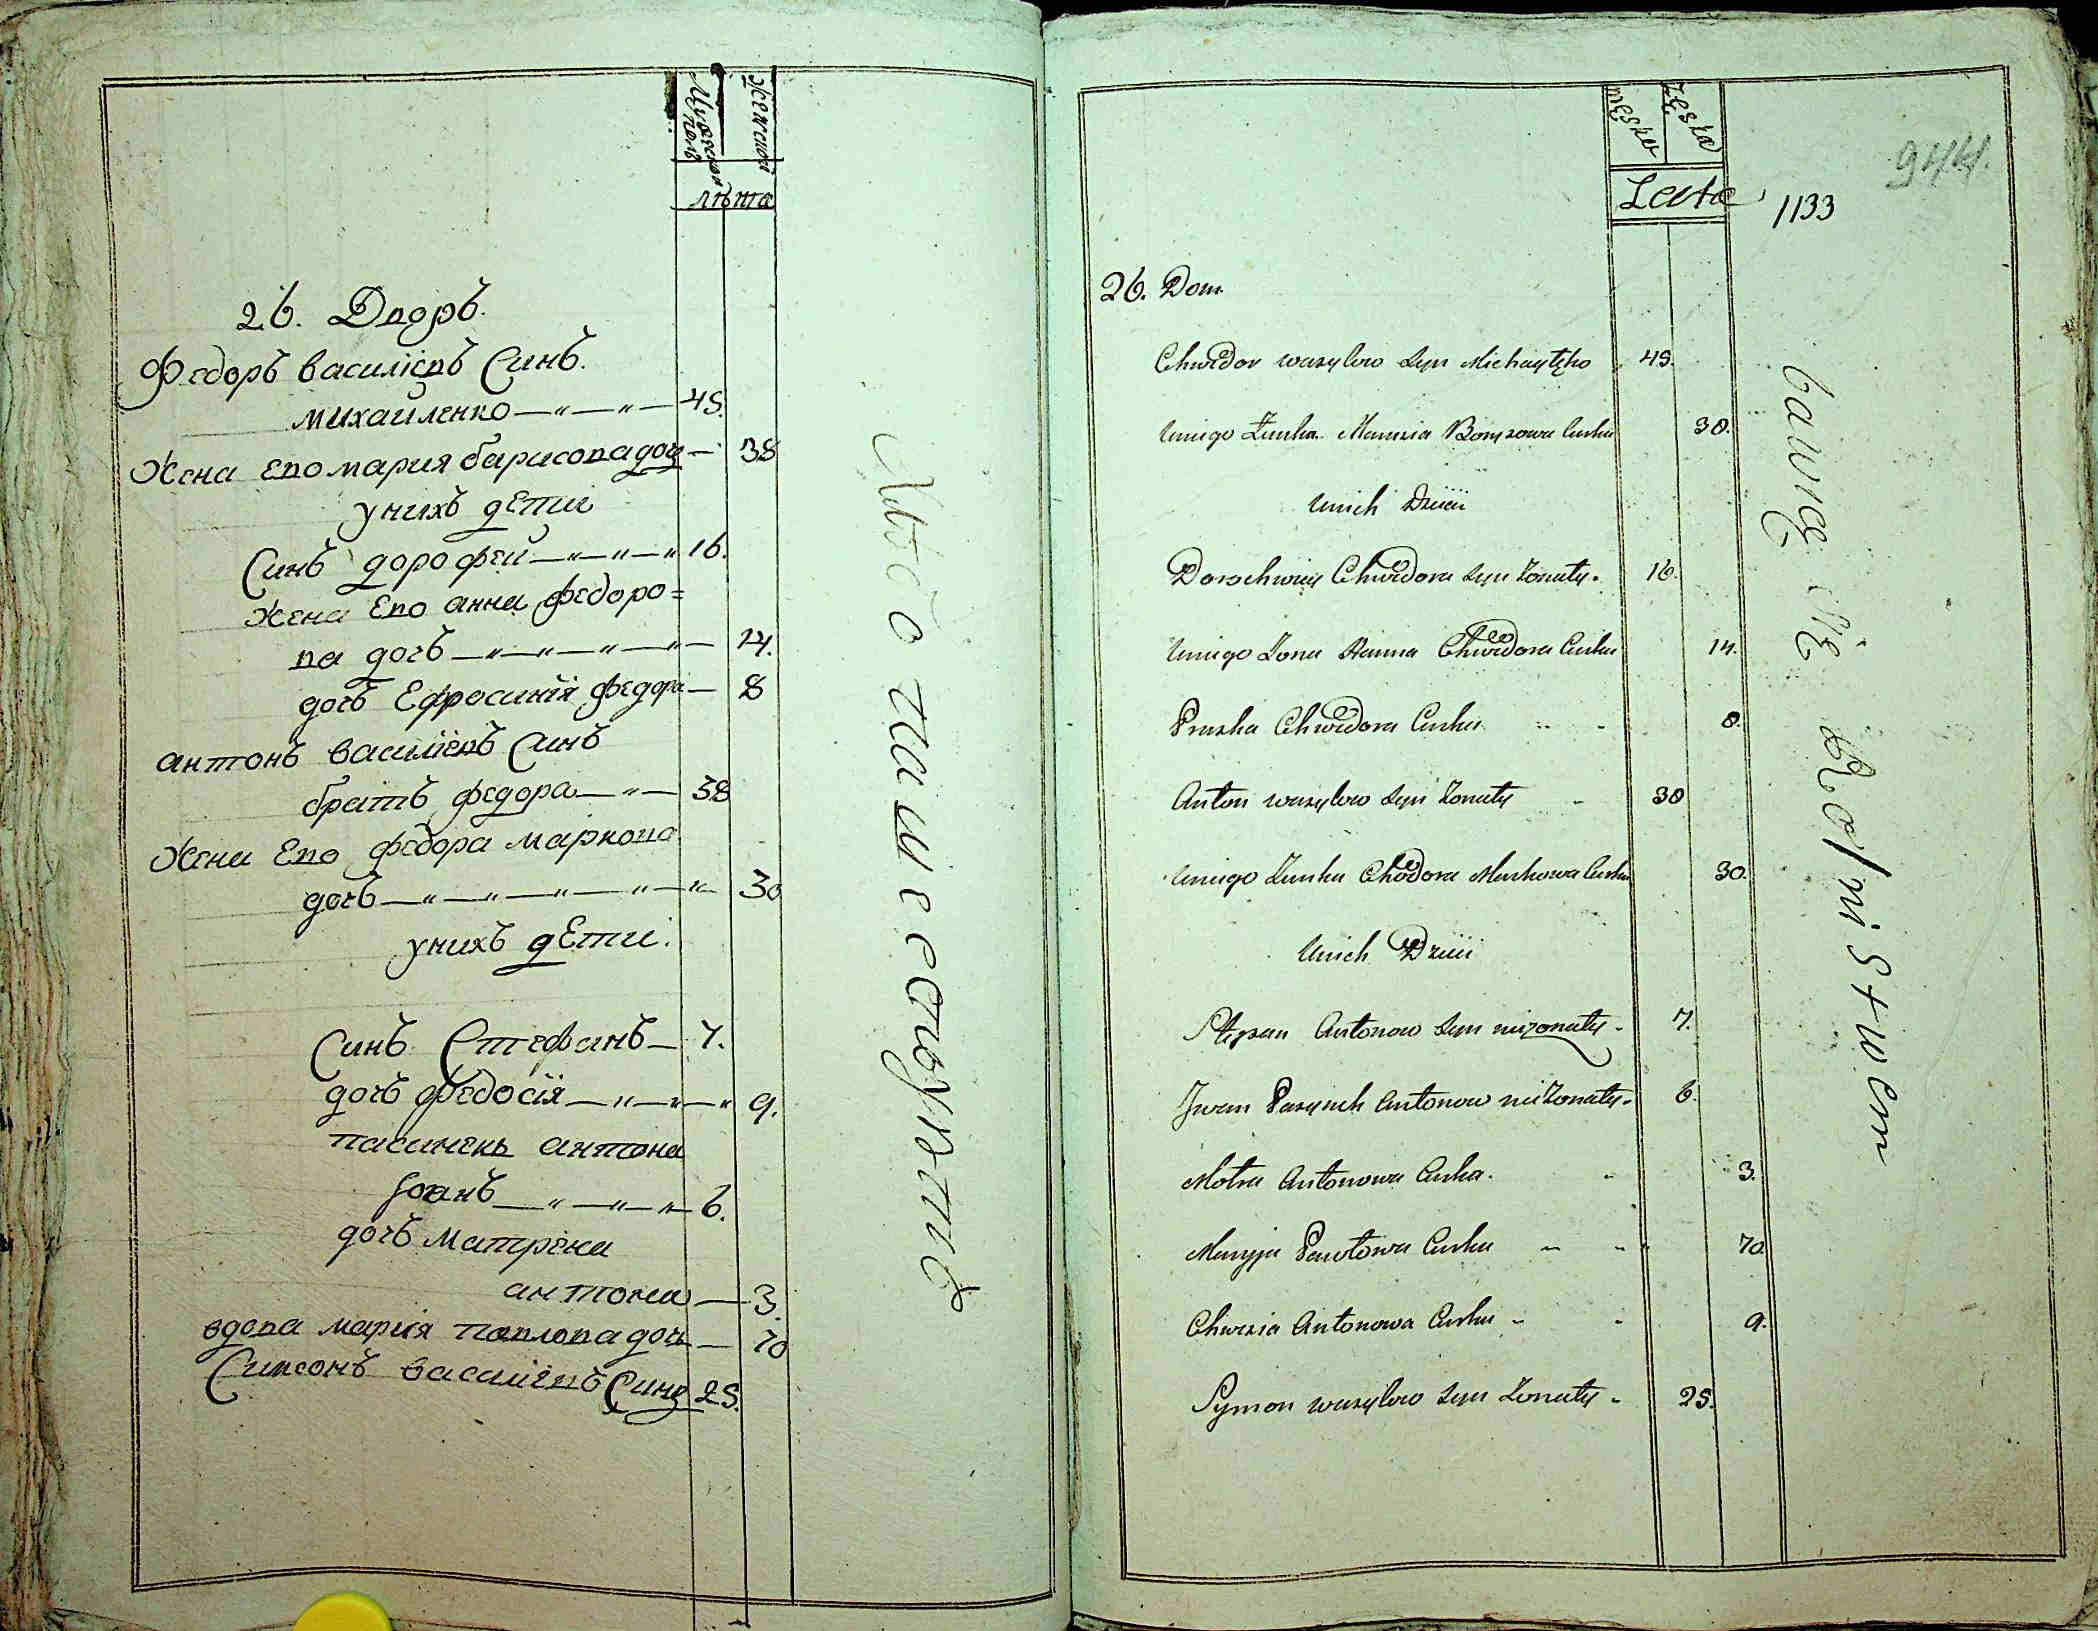 Мужеской полъ
Женской
лѣта
26. Дворъ.
Федоръ василіевъ Синъ.
михайленко 45.
Жена Его мария барисова доч 38
унихъ дети
Синъ дорофей 16.
Жена Его анна федоро=
ва дочъ 14.
дочъ Ефросинія федора 8
антонъ василіевъ Синъ
братъ федора 38
Жена Его федора маркова
дочъ 30
унихъ дЕти.
Синъ Стефанъ 7.
дочъ федосія 9.
пасинекъ антона
Іоанъ 6.
дочъ матрена
антона 3.
вдова мария павлова дочь 70
Симеонъ василіевъ Синъ 25.
Хлѣбопашествуетъ
męzka
Zęska
Lata
1133
944.
26. Dom
Chwedor wasylow syn Michayłęko 45.
Uniego Zunka Marusia Boryzowa Curka 30.
Unich Dzieci
Dorochwiey Chwedora syn Zonaty. 16.
Uniego Zona Hanna Chwedora Curka 14.
Pruzka Chwedora Curka 8.
Anton wasylow syn Zonaty 30
Uniego Zunka Chodora Markowa Curka 30.
Unich Dzieci
Stepan Antonow syn niezonaty 7.
Jwan Pasynek Antonow nieZonaty. 6.
Motra Antonowa Curka. 3.
Maryja Pawłowa Curka 70
Chwesia Antonowa Curka 9.
Symon wasylow syn Zonaty 25.
bawią się Rolnistwem